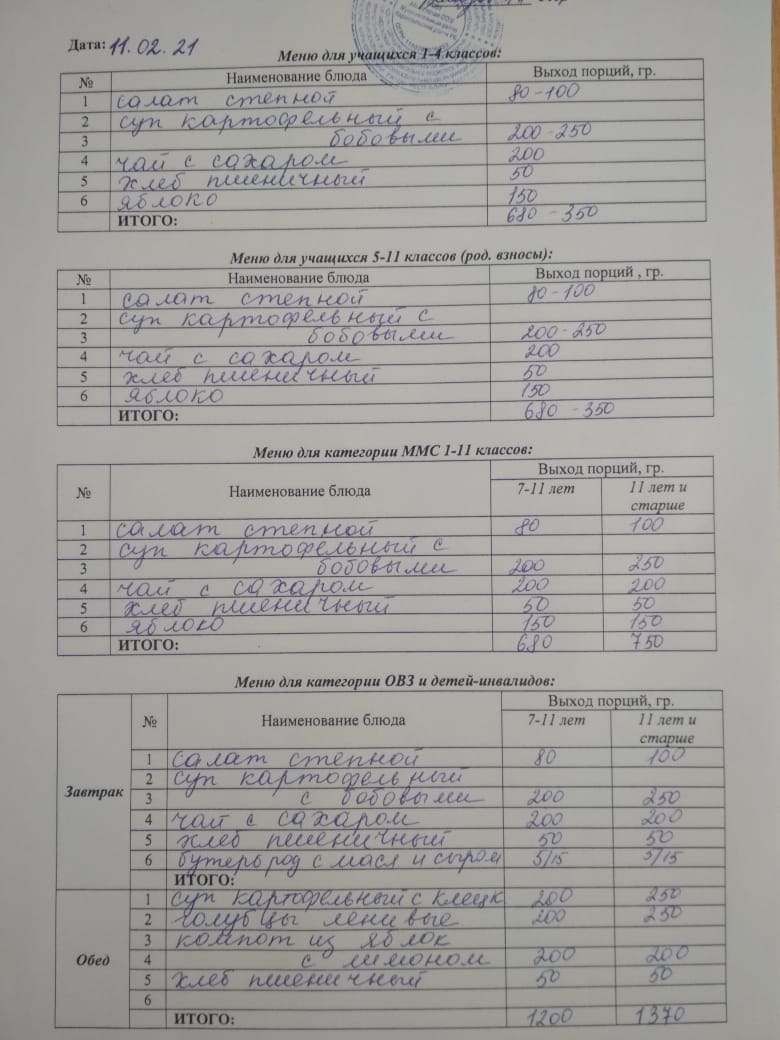 Дата: 11.02.21
Меню для учащихся 1-4 классов:
№ Наименование блюда Выход порций, гр.
1 салат степной 80-100
2 суп картофельный с
3 бобовыми 200-250
4 чай с сахаром 200
5 хлеб пшеничный 50
6 яблоко 150
ИТОГО: 680-350
Меню для учащихся 5-11 классов (род. взносы):
№ Наименование блюда Выход порций , гр.
1 салат степной 80-100
2 суп картофельный с
3 бобовыми 200-250
4 чай с сахаром 200
5 хлеб пшеничный 50
6 яблоко 150
ИТОГО: 680-350
Меню для категории ММС 1-11 классов:
№ Наименование блюда Выход порций, гр.
7-11 лет 11 лет и старше
1 салат степной 80 100
2 суп картофельный с
3 бобовыми 200 250
4 чай с сахаром 200 200
5 хлеб пшеничный 50 50
6 яблоко 150 150
ИТОГО: 680 750
Меню для категории ОВЗ и детей-инвалидов:
№ Наименование блюда Выход порций, гр.
7-11 лет 11 лет и старше
Завтрак
1 салат степной 80 100
2 суп картофельный
3 с бобовыми 200 250
4 чай с сахаром 200 200
5 хлеб пшеничный 50 50
6 бутерброд с масл и сыром 5/15 5/15
ИТОГО:
Обед
1 суп картофельный с клецк 200 250
2 голубцы ленивые 200 250
3 компот из яблок
4 с лимоном 200 200
5 хлеб пшеничный 50 50
6
ИТОГО: 1200 1370